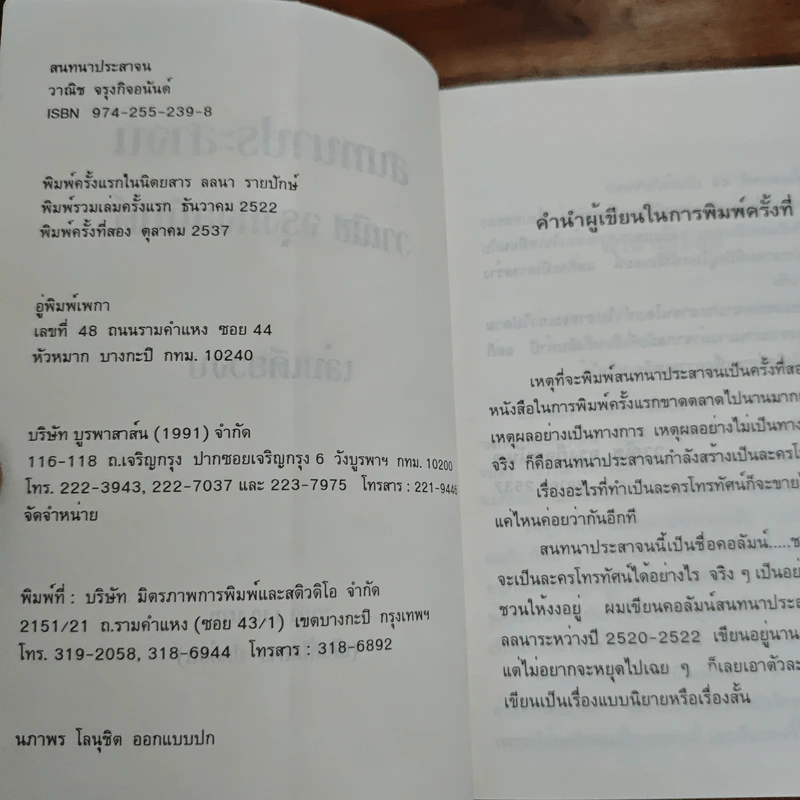 สนทนาประสาจน
วาณิช จรุงกิจอนันต์
ISBN 974-255-239-8
พิมพ์ครั้งแรกในนิตยสาร ลลนา รายปักษ์
พิมพ์รวมเล่มครั้งแรก ธันวาคม 2522
พิมพ์ครั้งที่สอง ตุลาคม 2537
อู่พิมพ์เพกา
เลขที่ 48 ถนนรามคำแหง ซอย 44
หัวหมาก บางกะปิ กทม. 10240
บริษัท บูรพาสาส์น (1991) จำกัด
116-118 ถ.เจริญกรุง ปากซอยเจริญกรุง 6 วังบูรพาฯ กทม. 10200
โทร. 222-3943, 222-7037 และ 223-7975 โทรสาร : 221-9446
จัดจำหน่าย
พิมพ์ที่ : บริษัท มิตรภาพการพิมพ์และสติวดิโอ จำกัด
2151/21 ถ.รามคำแหง (ซอย 43/1) เขตบางกะปิ กรุงเทพฯ
โทร. 319-2058, 318-6944 โทรสาร : 318-6892
นภาพร โลนุชิต ออกแบบปก
คำนำผู้เขียนในการพิมพ์ครั้งที่
เหตุที่จะพิมพ์สนทนาประสาจนเป็นครั้งที่สอ
หนังสือในการพิมพ์ครั้งแรกขาดตลาดไปนานมาก
เหตุผลอย่างเป็นทางการ เหตุผลอย่างไม่เป็นทาง
จริง ก็คือสนทนาประสาจนกำลังสร้างเป็นละครโท
เรื่องอะไรที่ทำเป็นละครโทรทัศน์ก็จะขาย
แค่ไหนค่อยว่ากันอีกที
สนทนาประสาจนนี้เป็นชื่อคอลัมน์.....ช
จะเป็นละครโทรทัศน์ได้อย่างไร จริง ๆ เป็นอย่
ชวนให้งงอยู่ ผมเขียนคอลัมน์สนทนาประส
ลลนาระหว่างปี 2520-2522 เขียนอยู่นาน
แต่ไม่อยากจะหยุดไปเฉย ๆ ก็เลยเอาตัวละ
เขียนเป็นเรื่องแบบนิยายหรือเรื่องสั้น